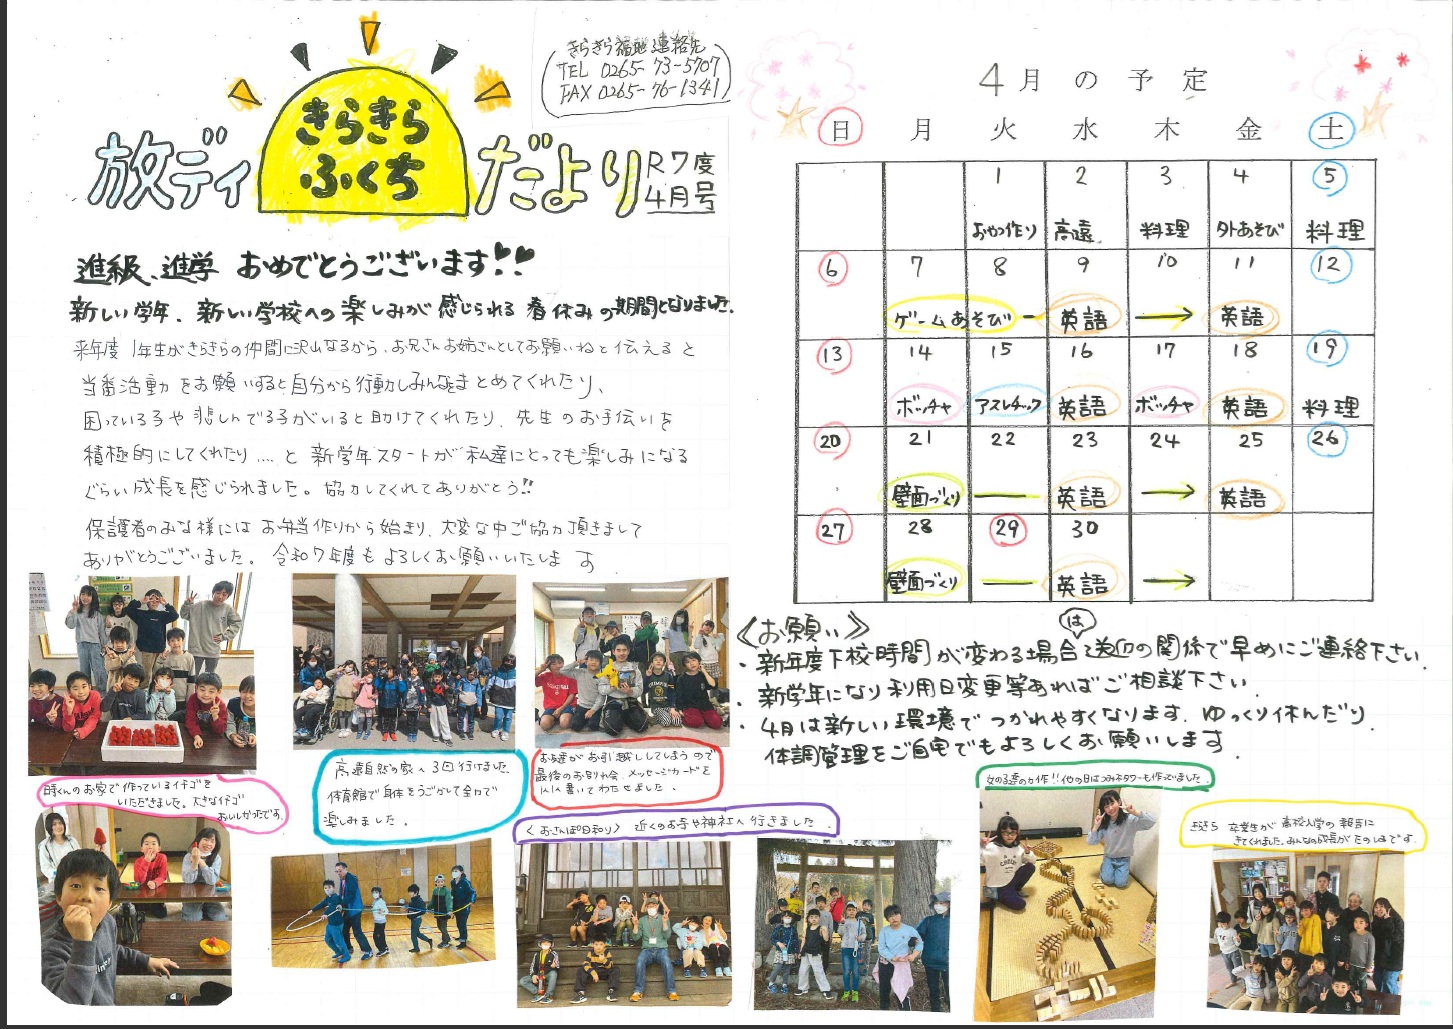 きらきら福地連絡先
TEL 0265-73-5707
FAX 0265-76-1341
放ディ きらきら ふくち だより
R7度
4月号
進級、進学 おめでとうございます!!
新しい学年、新しい学校への楽しみが感じられる 春休みの期間となりました。
来年度 1年生がきらきらの仲間に沢山なるから、お兄さんお姉さんとしてお願いねと伝えると
当番活動をお願いすると自分から行動しみんなをまとめてくれたり、
困っている子や悲しんでる子がいると助けてくれたり、先生のお手伝いを
積極的にしてくれたり....と 新学年スタートが私達にとっても楽しみになる
ぐらい成長を感じられました。協力してくれてありがとう!!
保護者のみな様には お弁当作りから始まり、大変な中ご協力頂きまして
ありがとうございました。令和7年度もよろしくお願いいたします
くんのお家で作っているイチゴを
いただきました。大きなイチゴ
おいしかったです。
高遠自然の家へ3回行けました
体育館で身体をうごかして全力で
楽しみました。
お友達がお引越ししてしまうので
最後のお別れ会、メッセージカードを
書いてわたせました。
〈おさんぽ日和り〉 近くのお寺や神社へ行きました
4月の予定
日 月 火 水 木 金 土
1 2 3 4 5
おやつ作り 高遠 料理 外あそび 料理
6 7 8 9 10 11 12
ゲームあそび 英語 → 英語
13 14 15 16 17 18 19
ボッチャ アスレチック 英語 ボッチャ 英語 料理
20 21 22 23 24 25 26
壁面づくり 英語 → 英語
27 28 29 30
壁面づくり 英語 →
《お願い》
・新年度下校時間が変わる場合は送迎の関係で早めにご連絡下さい.
・新学年になり利用日変更等あればご相談下さい.
・4月は新しい環境でつかれやすくなります.ゆっくり休んだり
体調管理をご自宅でもよろしくお願いします.
女の子達の力作!!他の日はつみ木タワーも作っていました。
卒業生が高校入学の報告に
きてくれました。みんなの成長がたのしみです.